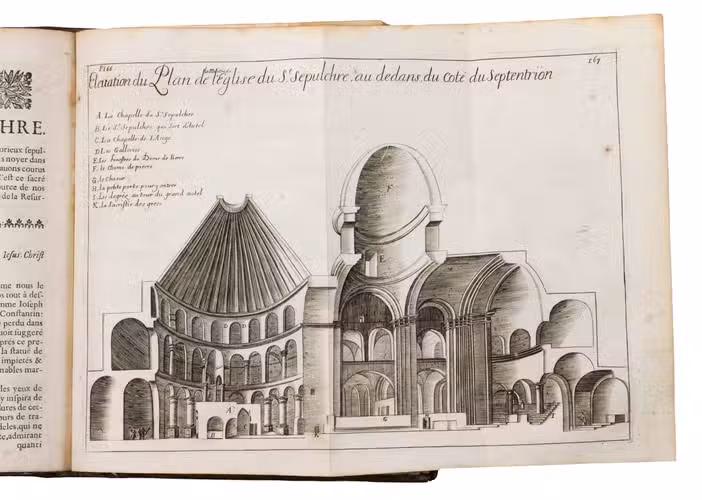 HRE.
urieux sepul-
s noyer dans
auons courus
'est ce sacré
ource de nos
de la Resur-
Iesus Christ
me nous le
os tout à des-
mme Ioseph
Constantin:
perdu dans
uoit suggeré
prés ce pre-
la statuë de
impietés &
nables mar-
les yeux de
y inspira de
dures de cet-
ours de tra-
deles, qui ne
te, admirant
quanti
167
Eleuation du Plan de l'église du St. Sepulchre, au dedans, du Coté du Septentrion
A. La Chapelle du St. Sepulchre
B. Le St. Sepulchre qui sert d'Autel
C. La Chapelle de l'Ange
D. Les Galleries
E. Les fenestres du Dome de Pierre
F. le Dome de pierre
G. le Chœur
H. la petite porte pour y entrer
I. Les degrés autour du grand autel
K. la Sacristie des grecs
F
E
D
D
A
B
G
K